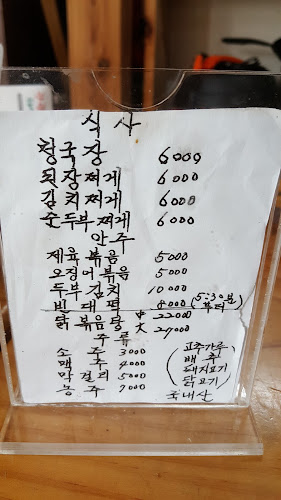 식사
청국장 6000
된장찌게 6000
김치찌게 6000
순두부찌게 6000
안주
제육볶음 5000
오징어볶음 5000
두부김치 10000
빈대떡 8000 (5:30분 부터)
닭볶음탕 中 22000
大 27000
주류
소주 3000
맥주 4000
막걸리 5000
농주 7000
(고추가루
배추
돼지고기
닭고기)
국내산